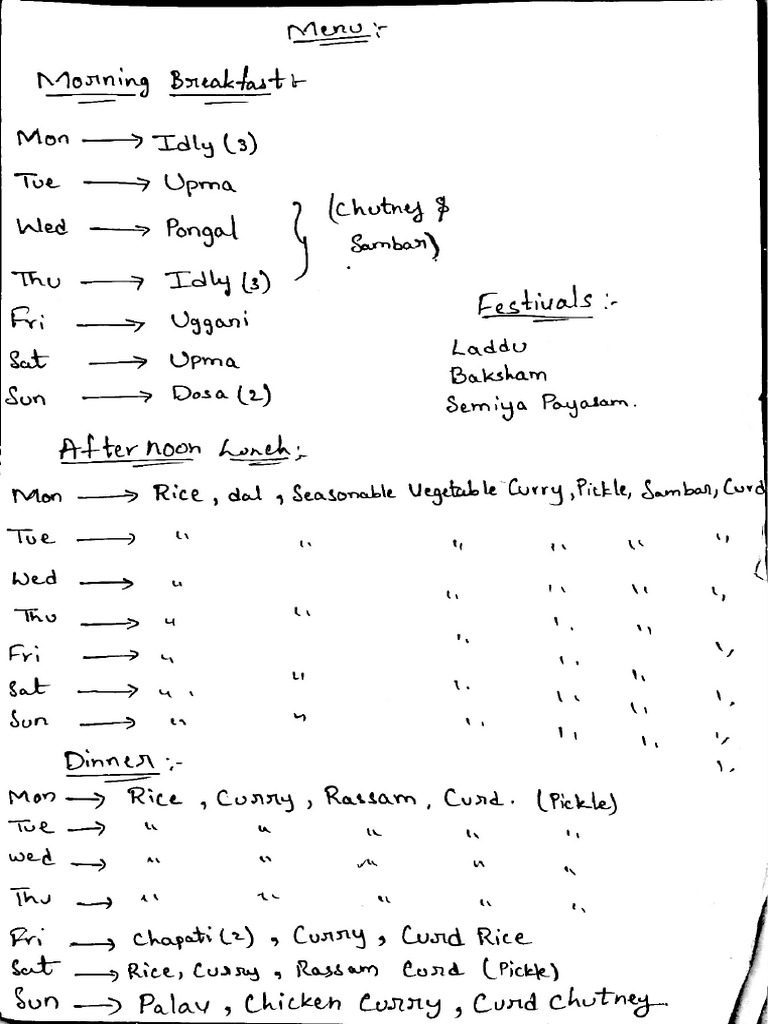 Menu:-
Morning Breakfast:-
Mon → Idly (3)
Tue → Upma
Wed → Pongal
Thu → Idly (3)
(Chutney &
Sambar)
Fri → Uggani
Sat → Upma
Sun → Dosa (2)
Festivals:-
Laddu
Baksham
Semiya Payasam.
Afternoon Lunch:-
Mon → Rice, dal, Seasonable Vegetable Curry, Pickle, Sambar, Curd
Tue → " " " " " "
Wed → " " " " "
Thu → " " " " "
Fri → " " " "
Sat → " " " " " "
Sun → " " " " " "
Dinner:-
Mon → Rice, Curry, Rassam, Curd. (Pickle)
Tue → " " " " "
Wed → " " " " "
Thu → " " " " "
Fri → Chapati (2), Curry, Curd Rice
Sat → Rice, Curry, Rassam Curd (Pickle)
Sun → Palav, Chicken Curry, Curd Chutney